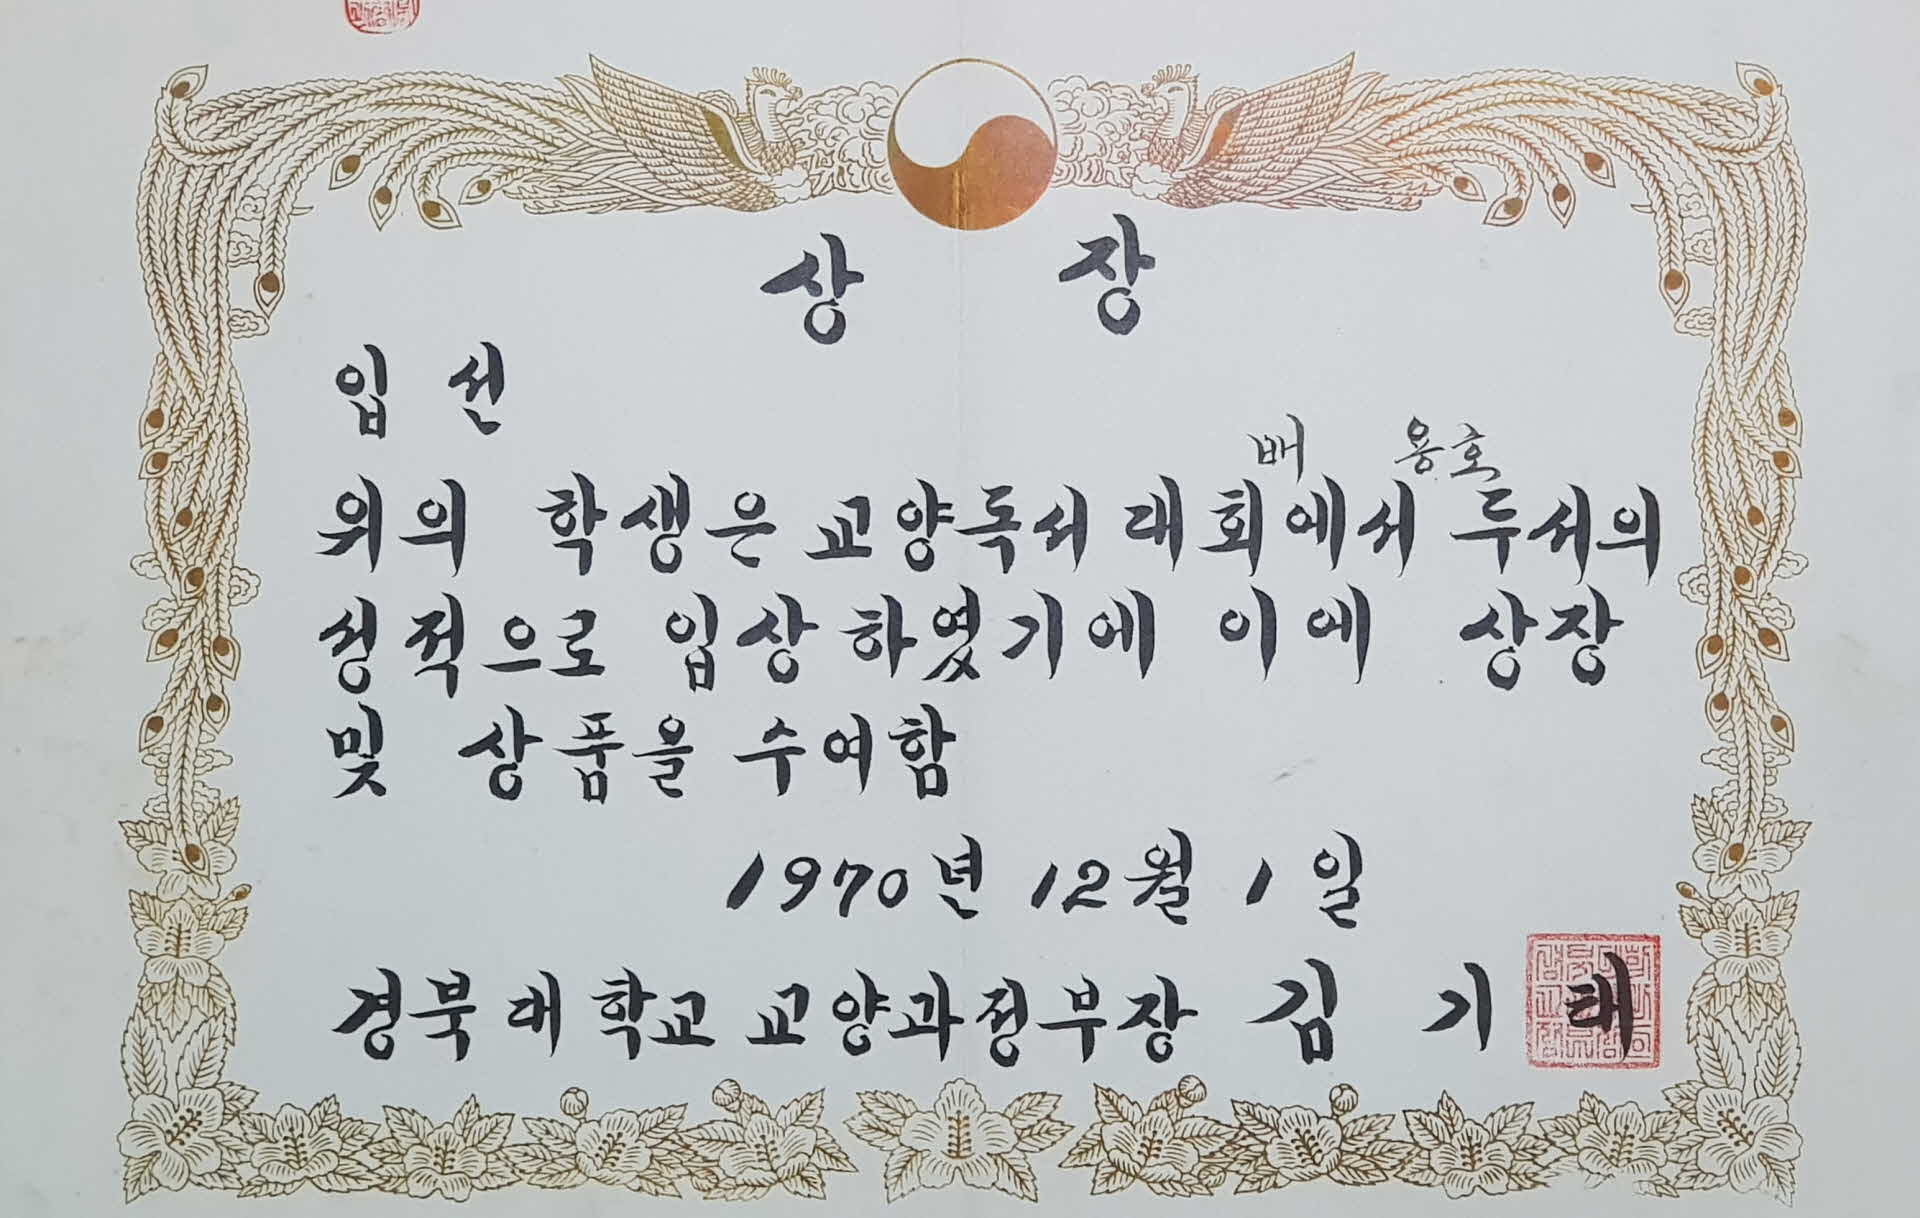 상 장
입 선
배 용호
위의 학생은 교양독서 대회에서 두서의
성적으로 입상 하였기에 이에 상장
및 상품을 수여함
1970년 12월 1일
경북대학교 교양과정부장 김 기 태